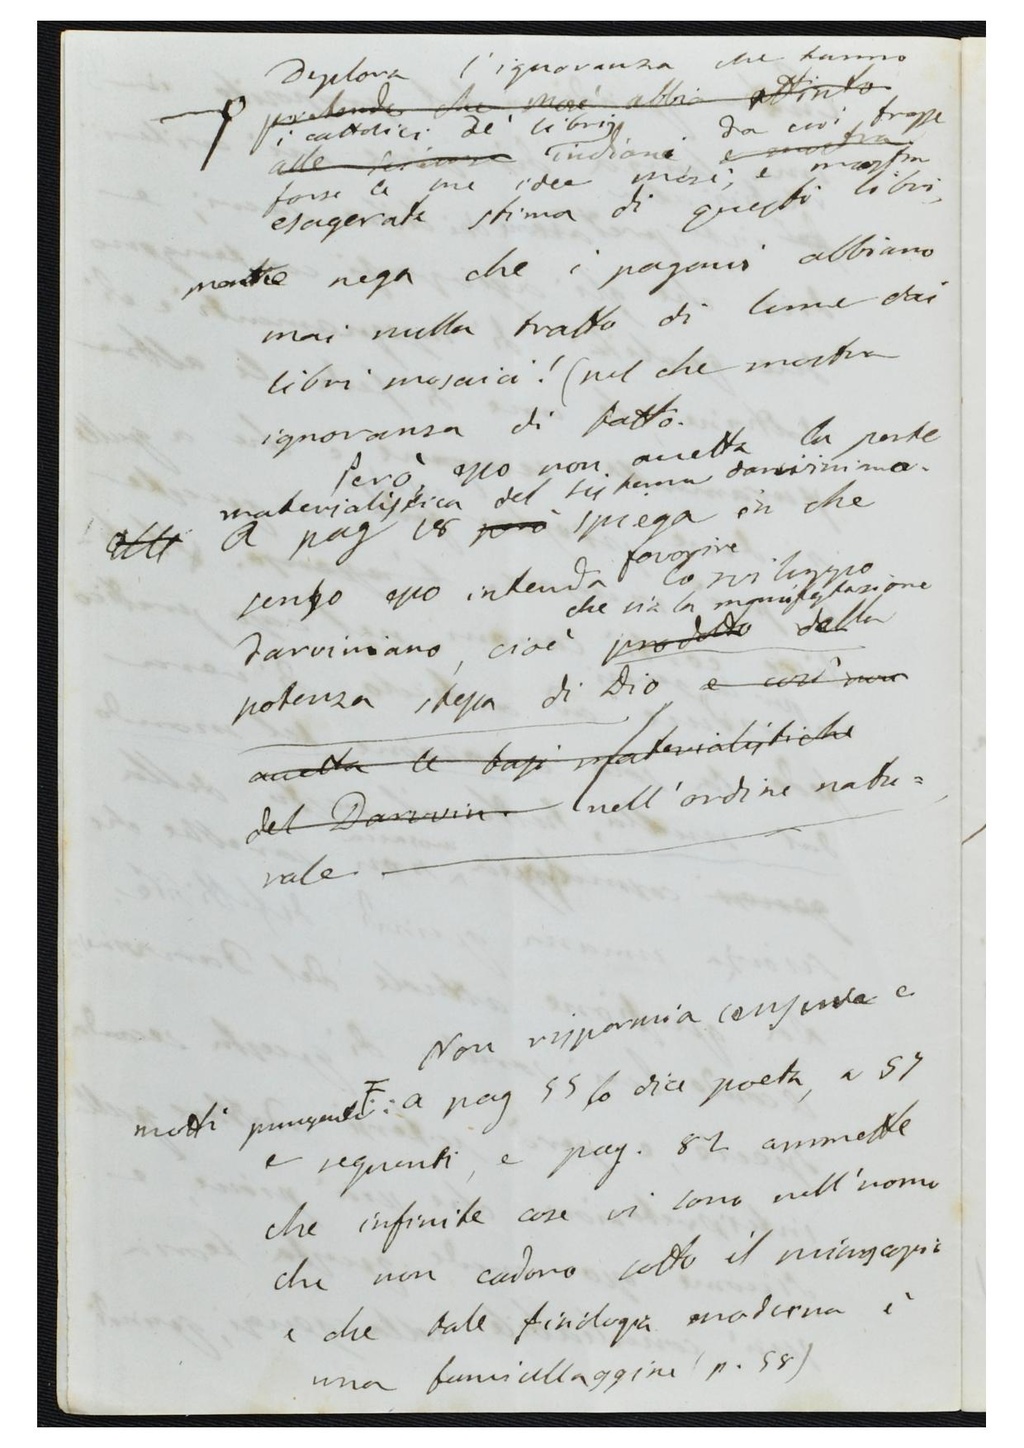 Deplora l'ignoranza che hanno
pretende che Mosé abbia attinto
i cattolici de' libri
alle scienze Indiani, da cui trasse
e mostra
forse le sue idee Mosé, e mostra
esagerata stima di questi libri,
mentre nega che i pagani abbiano
mai nulla tratto di lume dai
libri mosaici! (nel che mostra
ignoranza di fatto.
Però esso non accetta la parte
materialistica del sistema darviniano.
A pag 18 però spiega in che
senso esso intenda favorire
lo sviluppo
che sia la manifestazione
Darviniano, cioè prodotto della
potenza stessa di Dio e così non
accetta le basi materialistiche
del Darwin. nell'ordine natu=
rale.
Non risparmia censure e
motti pungenti: a pag 55 lo dice poeta, a 57
e seguenti, e pag. 82 ammette
che infinite cose vi sono nell'uomo
che non cadono sotto il microscopio
e che tale fisiologia moderna è
una fanciullaggine (p. 58)